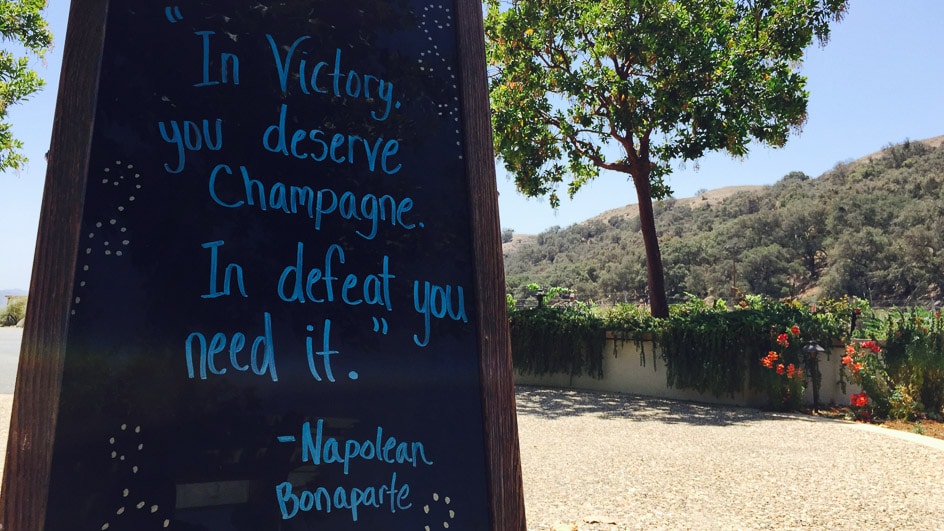 "In Victory,
you deserve
Champagne.
In defeat you
need it."
-Napolean
Bonaparte